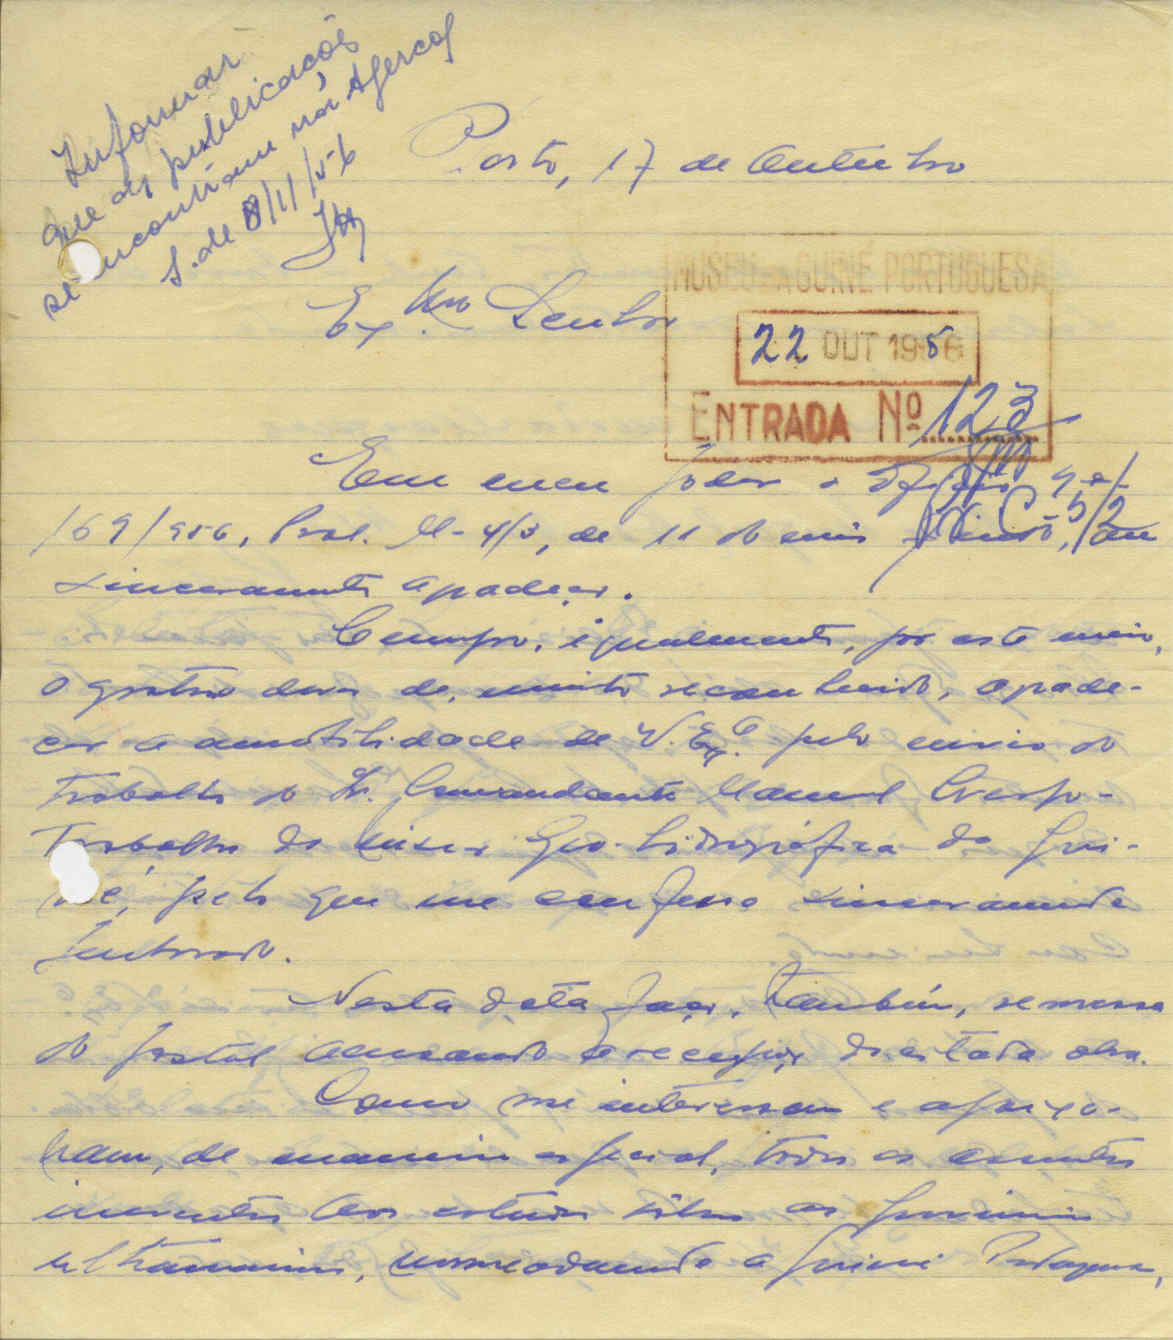 Informar
que as publicações
se encontram nos Agencos
S. de 8/11/56
Porto, 17 de Outubro
Ex.mo Senhor
MUSEU DA GUINÉ PORTUGUESA
22 OUT 1956
ENTRADA Nº 123
Em meu poder o
/69/956, Proc. M-4/3, de 11 do mês
sinceramente agradeço.
Cumpro, igualmente, por este meio,
o grato dever de, muito reconhecido, agrade-
cer a amabilidade de V. Ex.ª pelo envio do
trabalho do Sr. Comandante Manuel Crespo-
Trabalhos da Missão Geo-hidrográfica da Gui-
né, pelo que me confesso sinceramente
honrado.
Nesta data faço, também, remessa
do postal acusando a recepção da citada obra.
Como me interessam e apaixo-
nam, de maneira especial, todos os assuntos
inerentes aos estudos sobre as províncias
ultramarinas, nomeadamente a Guiné Portuguesa,